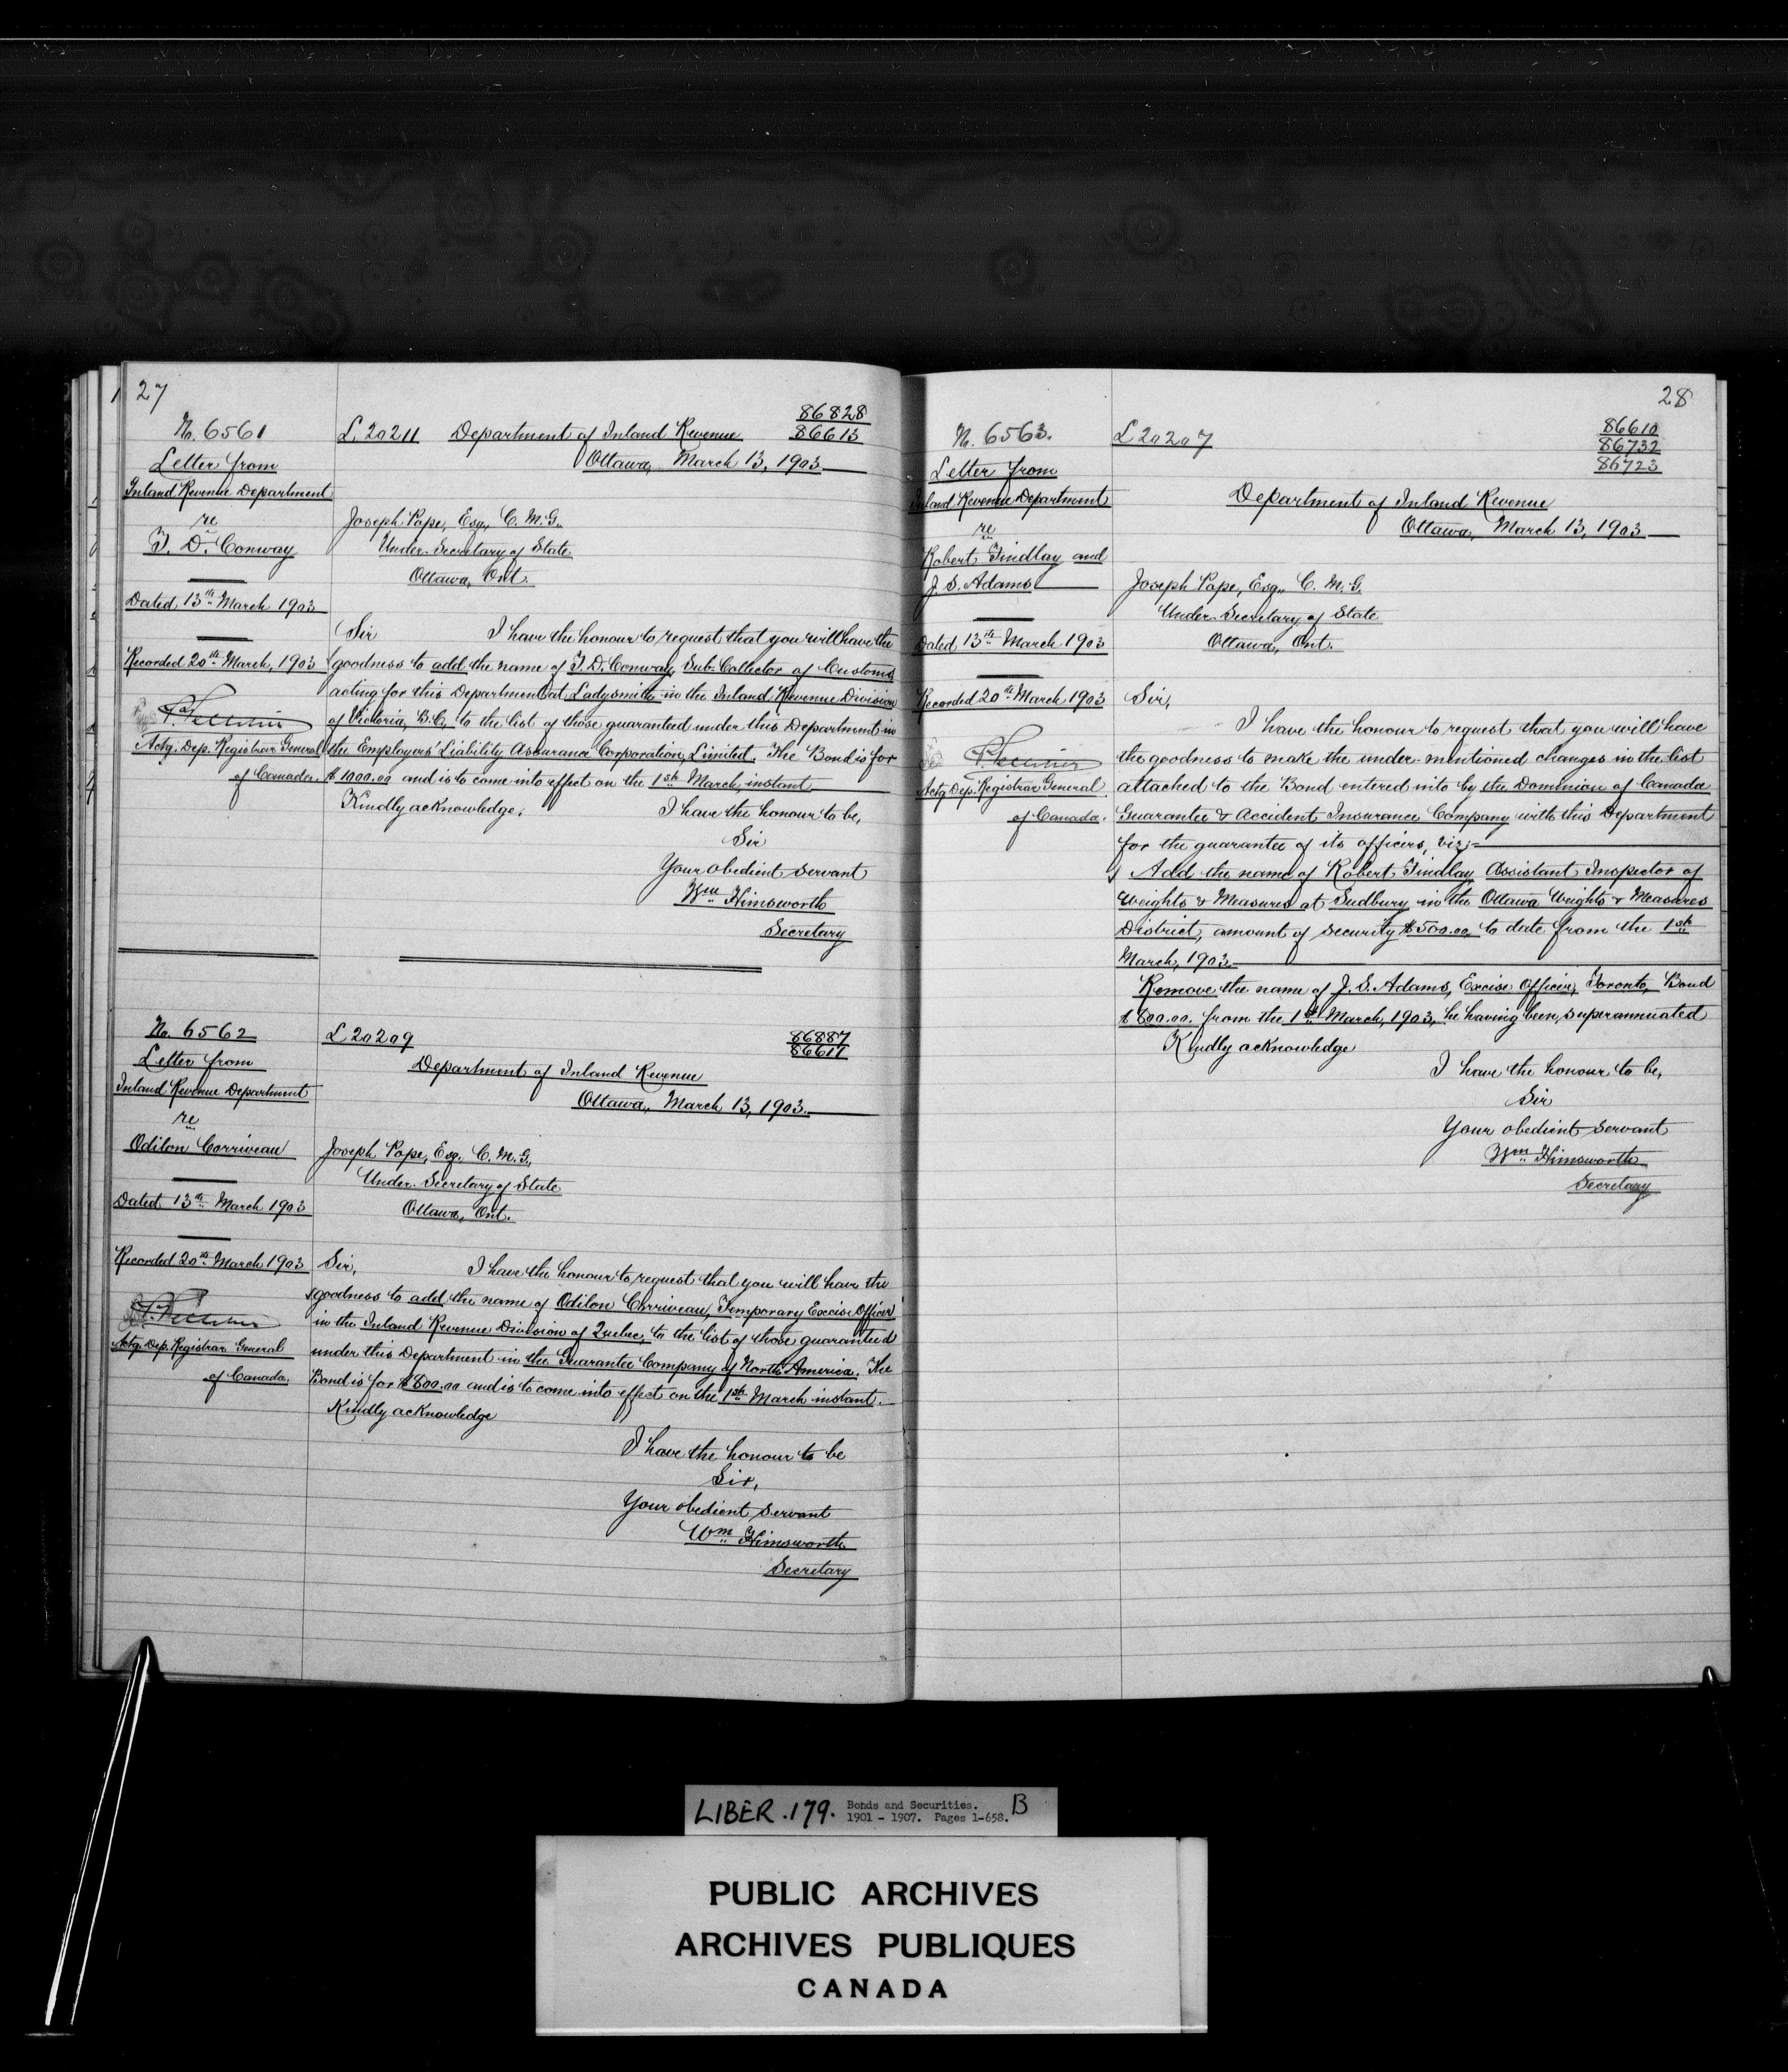 27
No. 6561
Letter from
Inland Revenue Department
re
T. D. Conway
Dated 13th March 1903
Recorded 20th March, 1903
Actg. Dep. Registrar General
of Canada.
86828
L 20211 Department of Inland Revenue 86613
Ottawa, March 13, 1903
Joseph Pope, Esq., C. M. G.
Under-Secretary of State
Ottawa, Ont.
Sir I have the honour to request that you will have the
goodness to add the name of T. D. Conway, Sub-Collector of Customs
acting for this Department at Ladysmith in the Inland Revenue Division
of Victoria, B.C., to the list of those guaranteed under this Department in
the Employers' Liability Assurance Corporation, Limited. The Bond is for
$1000.00 and is to come into effect on the 1st March, instant
Kindly acknowledge. I have the honour to be,
Sir
Your obedient servant
Wm Himsworth
Secretary
No. 6562
Letter from
Inland Revenue Department
re
Odilon Corriveau
Dated 13th March 1903
Recorded 20th March 1903
Actg. Dep. Registrar General
of Canada.
L 20209 86887
86611
Department of Inland Revenue
Ottawa, March 13, 1903
Joseph Pope, Esq. C. M. G.,
Under-Secretary of State
Ottawa, Ont.
Sir, I have the honour to request that you will have the
goodness to add the name of Odilon Corriveau, Temporary Excise Officer
in the Inland Revenue Division of Quebec, to the list of those guaranteed
under this Department in the Guarantee Company of North America. The
Bond is for $800.00 and is to come into effect on the 1st March instant.
Kindly acknowledge
I have the honour to be
Sir,
Your obedient servant
Wm Himsworth
Secretary
28
No. 6563.
Letter from
Inland Revenue Department
re
Robert Findlay and
J. S. Adams
Dated 13th March 1903
Recorded 20th March 1903
Actg Dep. Registrar General
of Canada.
L 20207 86610
86732
86723
Department of Inland Revenue
Ottawa, March 13, 1903
Joseph Pope, Esq., C. M. G.
Under-Secretary of State
Ottawa, Ont.
Sir,
I have the honour to request that you will have
the goodness to make the under-mentioned changes in the list
attached to the Bond entered into by the Dominion of Canada
Guarantee & Accident Insurance Company with this Department
for the guarantee of its officers, viz:-
Add the name of Robert Findlay Assistant Inspector of
Weights & Measures at Sudbury in the Ottawa Weights & Measures
District, amount of security $500.00, to date from the 1st
March, 1903
Remove the name of J. S. Adams, Excise Officer, Toronto, Bond
$800.00. from the 1st March, 1903, he having been, superannuated
Kindly acknowledge
I have the honour to be,
Sir
Your obedient servant
Wm Himsworth
Secretary
LIBER .179. Bonds and Securities. B
1901 - 1907. Pages 1-658.
PUBLIC ARCHIVES
ARCHIVES PUBLIQUES
CANADA